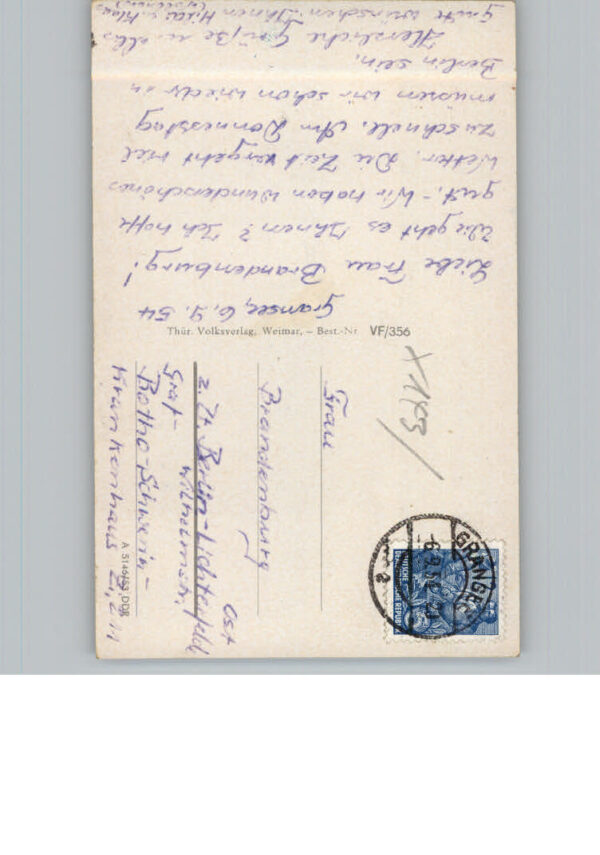 Gransee, 6.9.54
Liebe Frau Brandenburg!
Wie geht es Ihnen? Ich hoffe
gut. - Wir haben wunderschönes
Wetter. Die Zeit vergeht viel
zu schnell. Am Donnerstag
müssen wir schon wieder in
Berlin sein.
Herzliche Grüße u. alles
Gute wünschen Ihnen
Thür. Volksverlag, Weimar, – Best.-Nr VF/356
Frau
Brandenburg
z. Zt. Berlin-Lichterfelde
Ost
Wilhelmstr.
Graf-
Botho-Schwerin-
Krankenhaus
A 5146/53 DDR
GRANSEE
-6.9.54